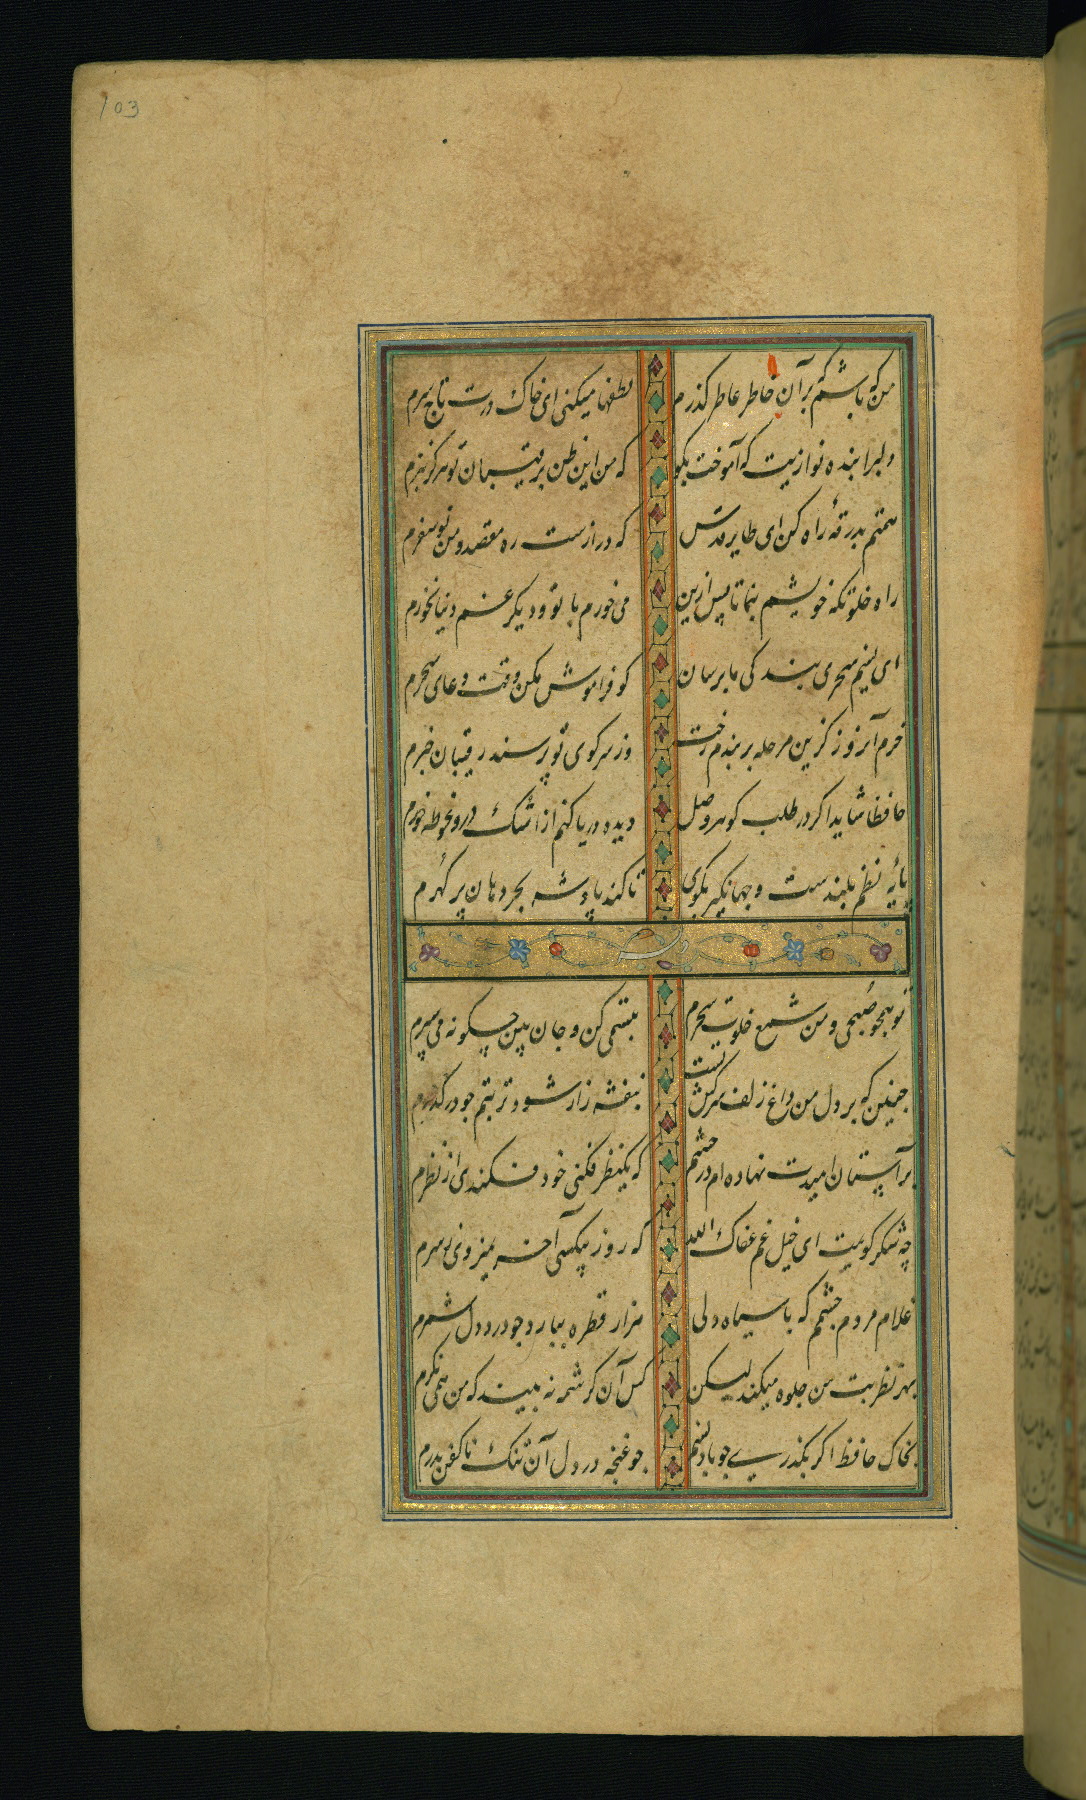 103
من که باشم که بر آن خاطر عاطر گذرم لطفها میکنی ای خاک درت تاج سرم
دلبرا بنده نوازیت که آموخت بگو که من این ظن برقیبان تو هرگز نبرم
همتم بدرقهٔ راه کن ای طایر قدس که درازست ره مقصد و من نوسفرم
راه خلوتگه خویشم بنما تا پس ازین می خورم با تو و دیگر غم دنیا نخورم
ای نسیم سحری بندگی ما برسان کو فراموش مکن وقت دعای سحرم
خرم آنروز کزین مرحله بربندم رخت وز سر کوی تو پرسند رقیبان خبرم
حافظا شاید اگر در طلب گوهر وصل دیده دریا کنم از اشک و درو غوطه خورم
پایهٔ نظم بلندست و جهانگیر بگوی تا کند پادشه بحر دهان پر گهرم
تو همچو صبحی و من شمع خلوت سحرم تبسمی کن و جان بین چگونه می سپرم
چنین که بر دل من داغ زلف سرکش تست بنفشه زار شود تربتم چو درگذرم
بر آستان امیدت نهاده ام در چشم که یکنظر فکنی خود فکندی از نظرم
چه شکر گویمت ای خیل غم عفاک الله که روز بیکسی آخر نمیروی ز سرم
غلام مردم چشمم که با سیاه دلی هزار قطره ببارد چو درد دل شمرم
بهر نظر بت من جلوه میکند لیکن کس آن کرشمه نه بیند که من همی نگرم
بخاک حافظ اگر بگذری چو باد نسیم چو غنچه در دل آن تنگ تا کفن بدرم